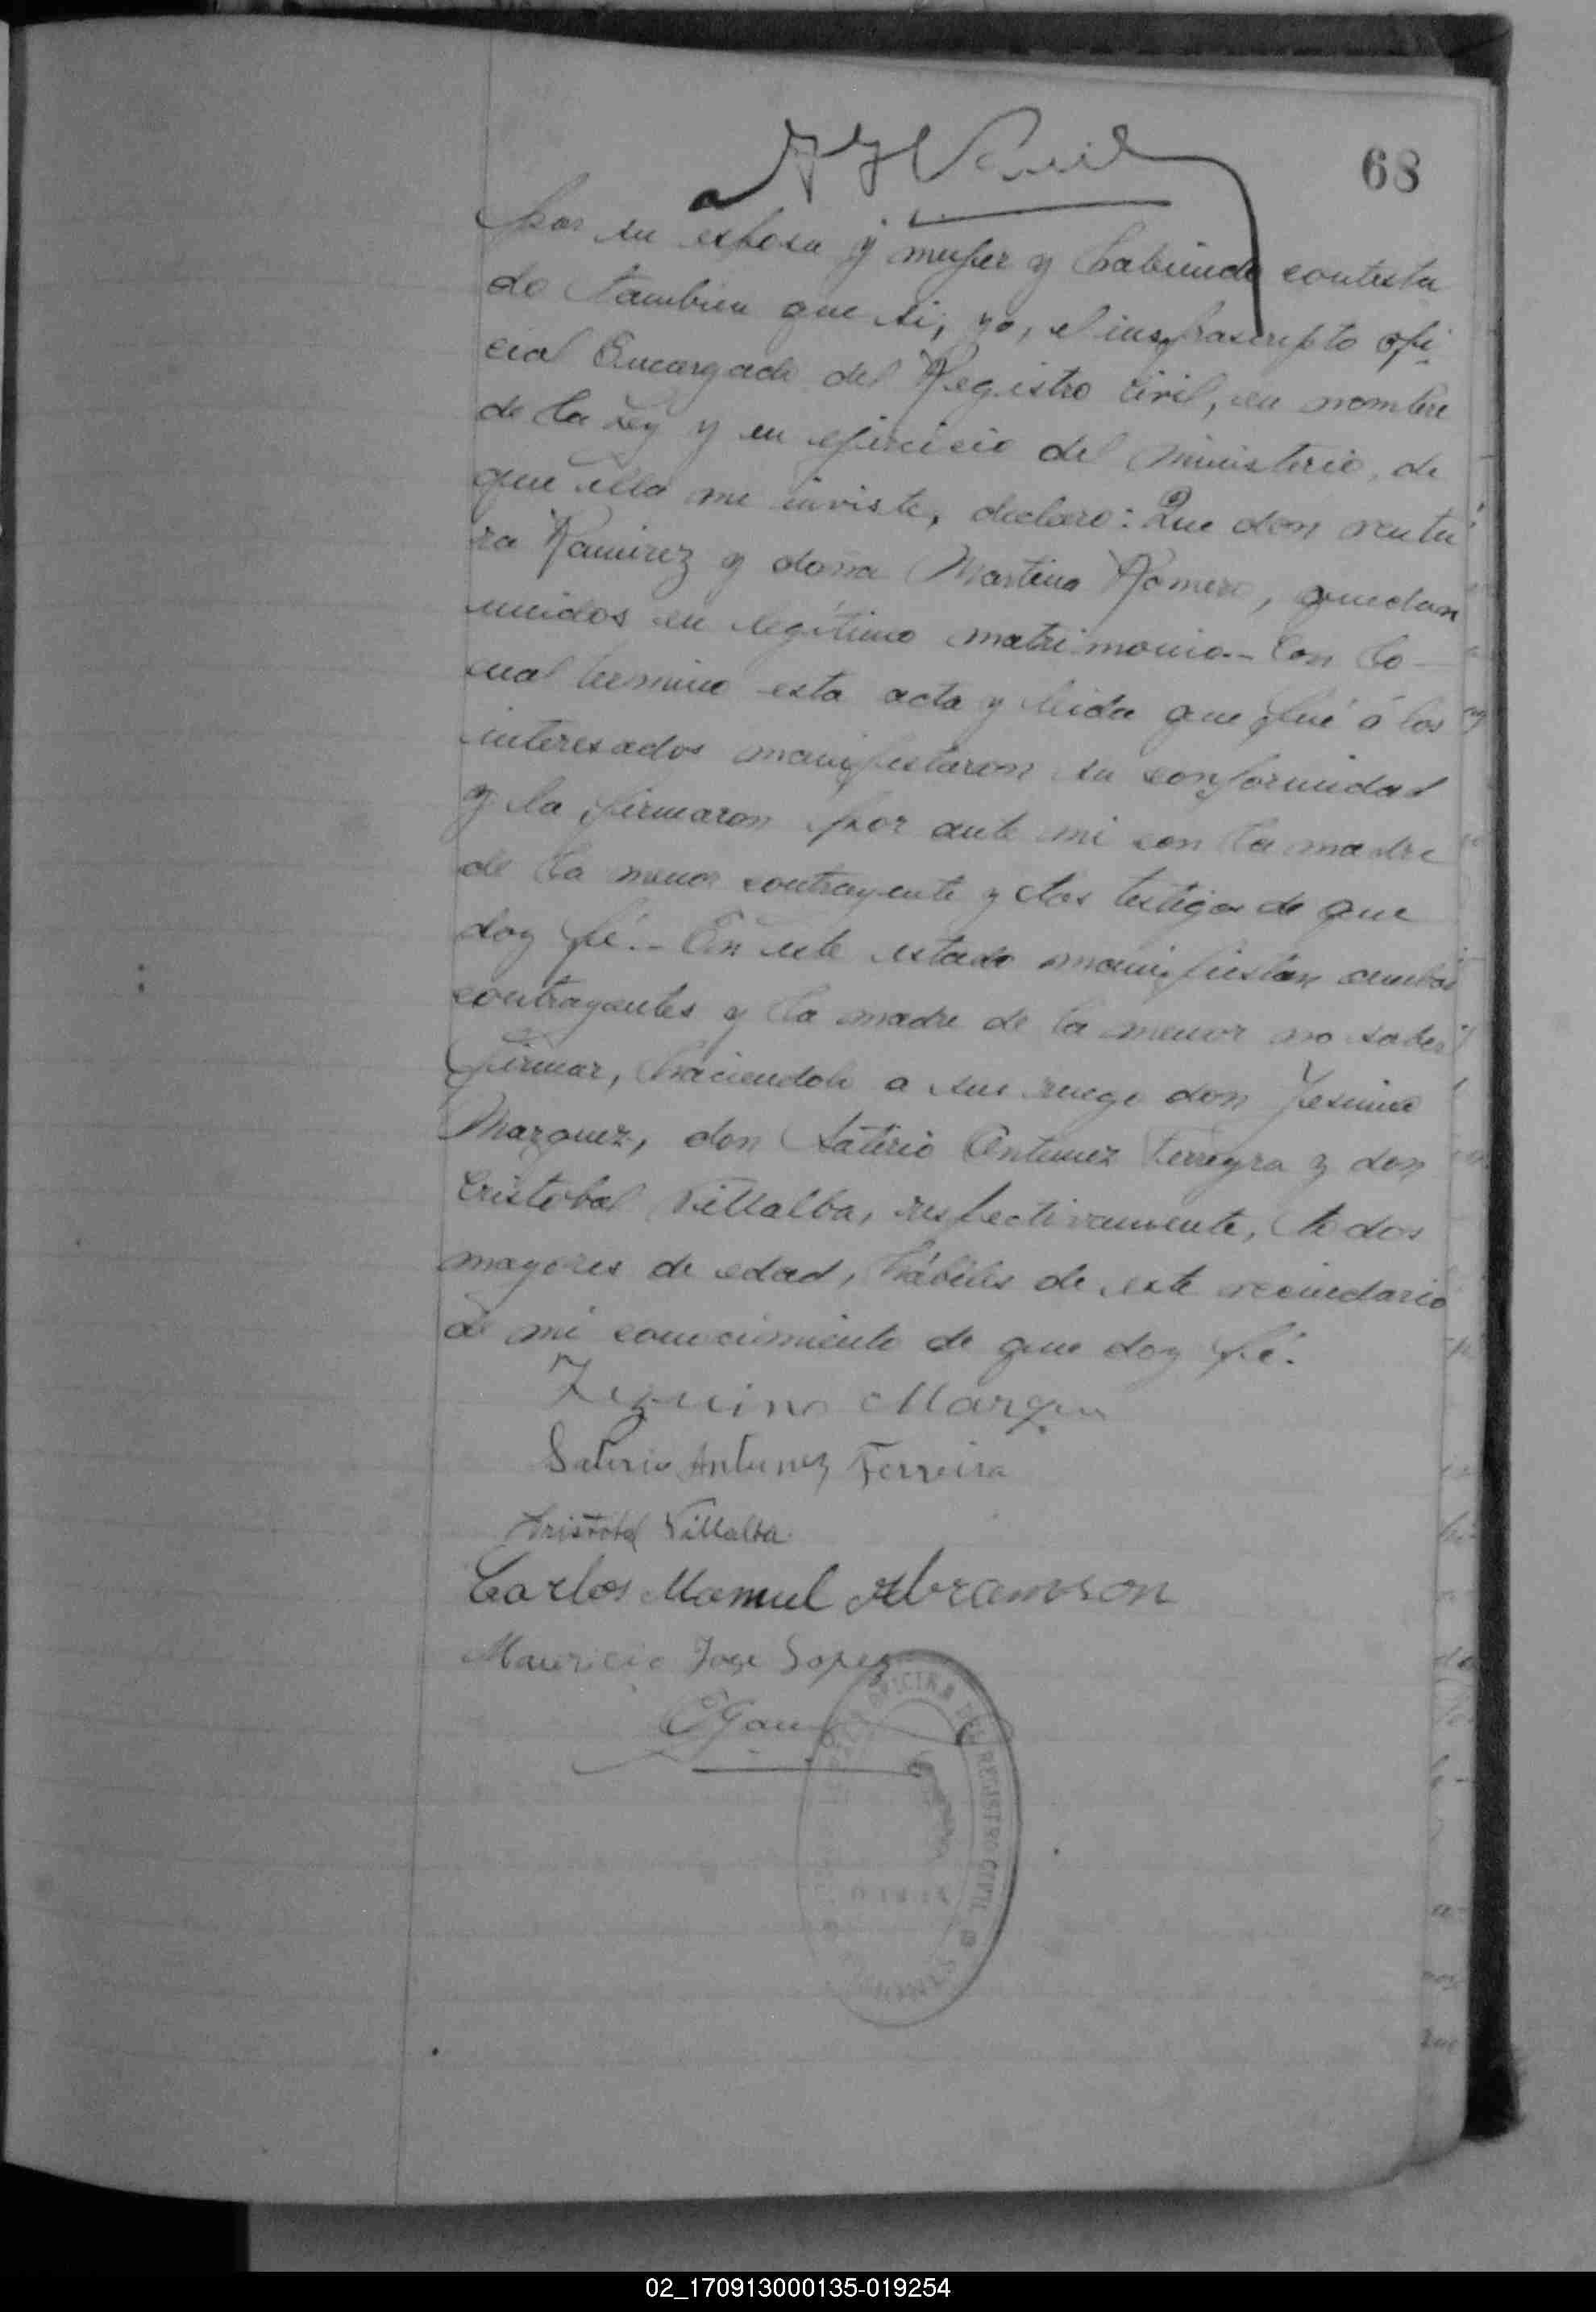 68
por su esposa y mujer y habiendo contesta
do tambien que si, yo, el infrascripto ofi-
cial Encargado del Registro Civil, en nombre
de la Ley y en ejercicio del ministerio, de
que ella me inviste, declaro: Que don Ventu
ra Ramirez y doña Martina Romero, quedan
unidos en legítimo matrimonio.- Con lo-
cual termino esta acta y leida que fué á los
interesados manifestaron su conformidad
y la firmaron por ante mi con la madre
de la menor contrayente y los testigos de que
doy fé.- En este estado manifiestan ambos
contrayentes y la madre de la menor no saber
firmar, haciendolo a su ruego don
Marquez, don Saterio Antunez Ferreyra y don
Cristobal Villalba, respectivamente, todos
mayores de edad, hábiles de este vecindario
de mi conocimiento de que doy fé.
Marquez
Saterio Antunez Ferreira
Cristobal Villalba
Carlos Manuel Abramson
Mauricio Jose Lopez
OFICINA DEL REGISTRO CIVIL
02_170913000135-019254